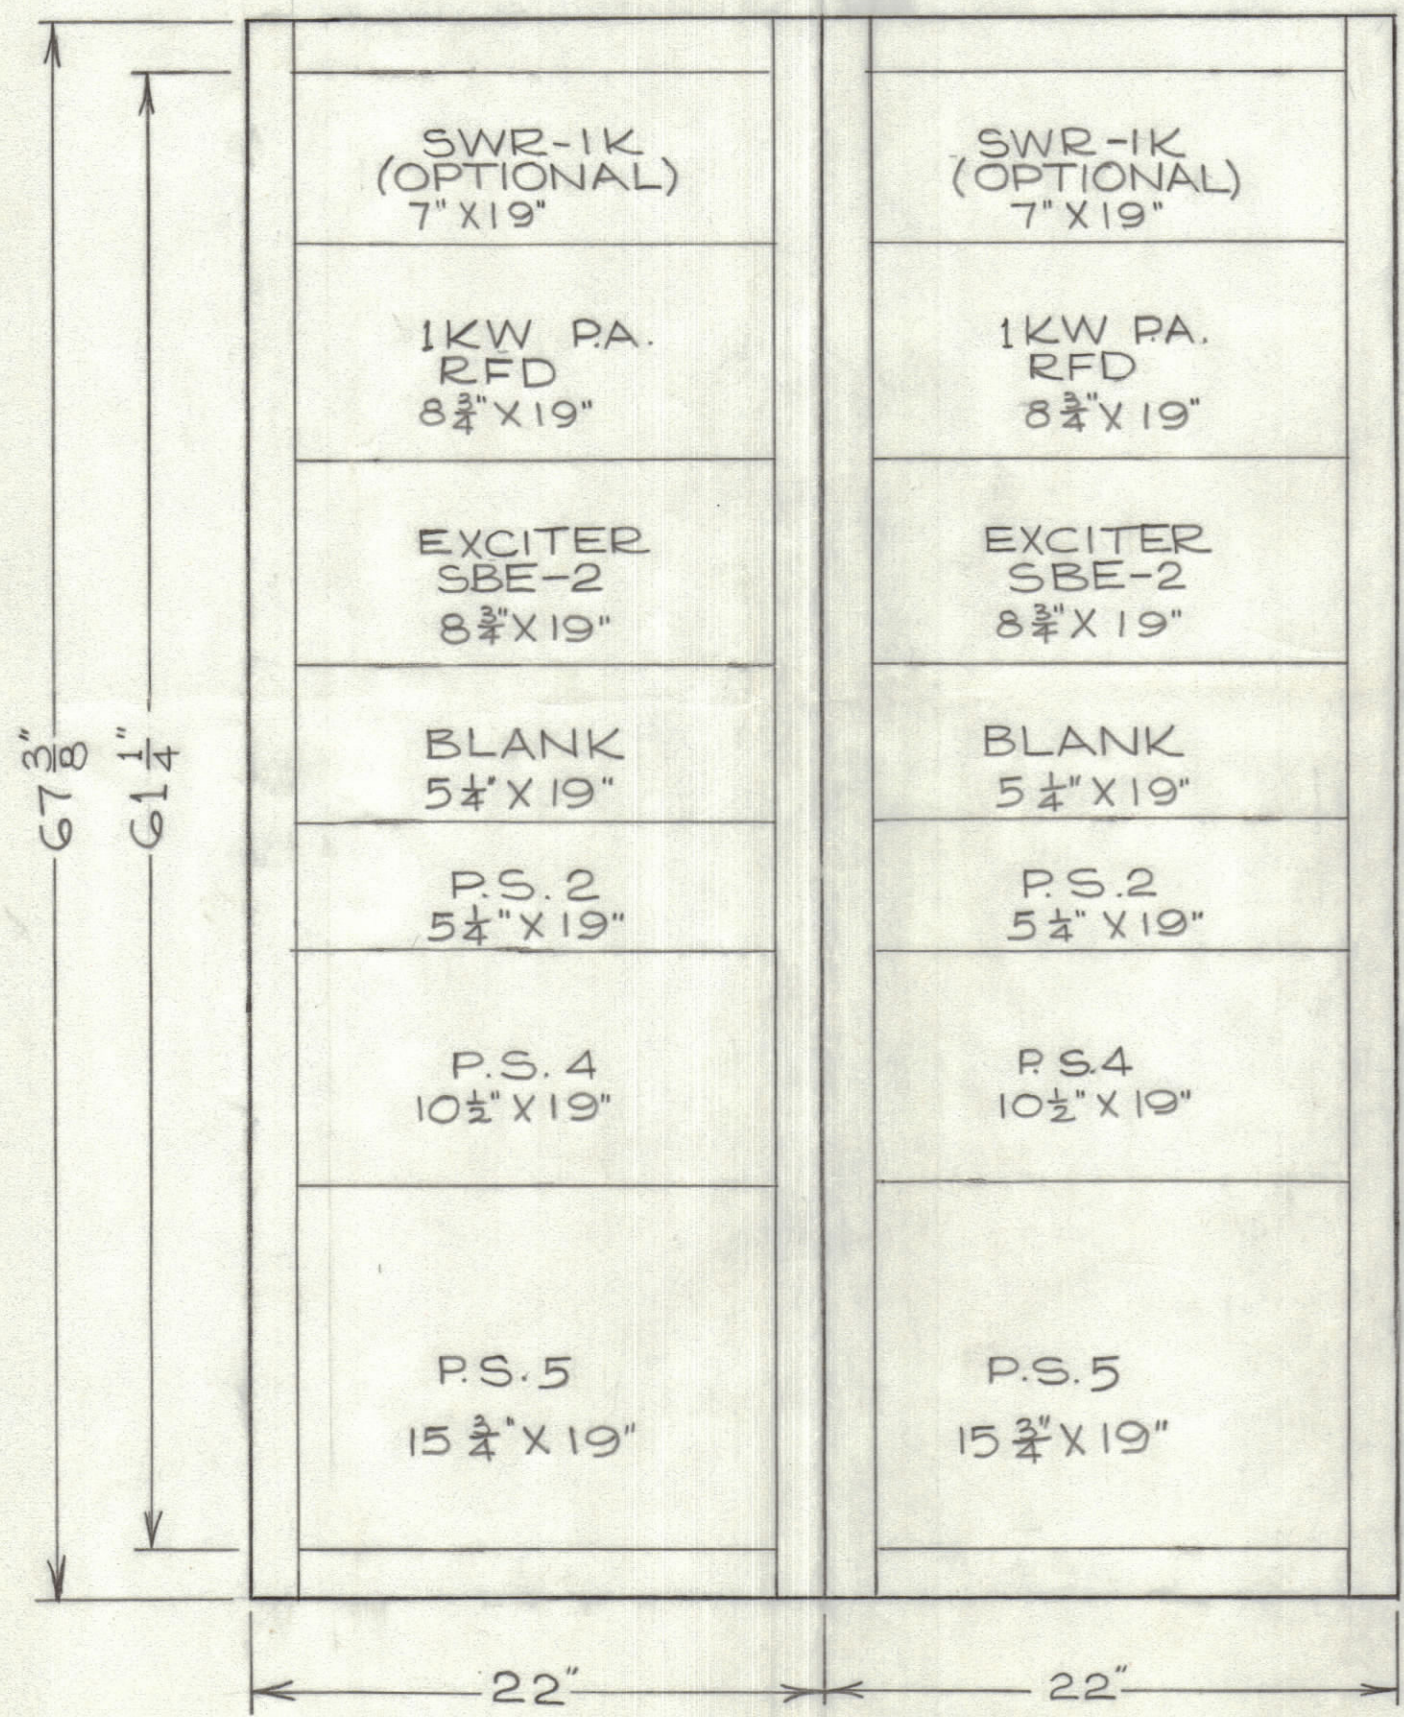 SWR-1K
(OPTIONAL)
7" X 19"
1KW P.A.
RFD
8 3/4" X 19"
EXCITER
SBE-2
8 3/4" X 19"
BLANK
5 1/4" X 19"
P.S. 2
5 1/4" X 19"
P.S. 4
10 1/2" X 19"
P.S. 5
15 3/4" X 19"
SWR-1K
(OPTIONAL)
7" X 19"
1KW P.A.
RFD
8 3/4" X 19"
EXCITER
SBE-2
8 3/4" X 19"
BLANK
5 1/4" X 19"
P.S. 2
5 1/4" X 19"
P.S. 4
10 1/2" X 19"
P.S. 5
15 3/4" X 19"
67 3/8"
61 1/4"
22"
22"